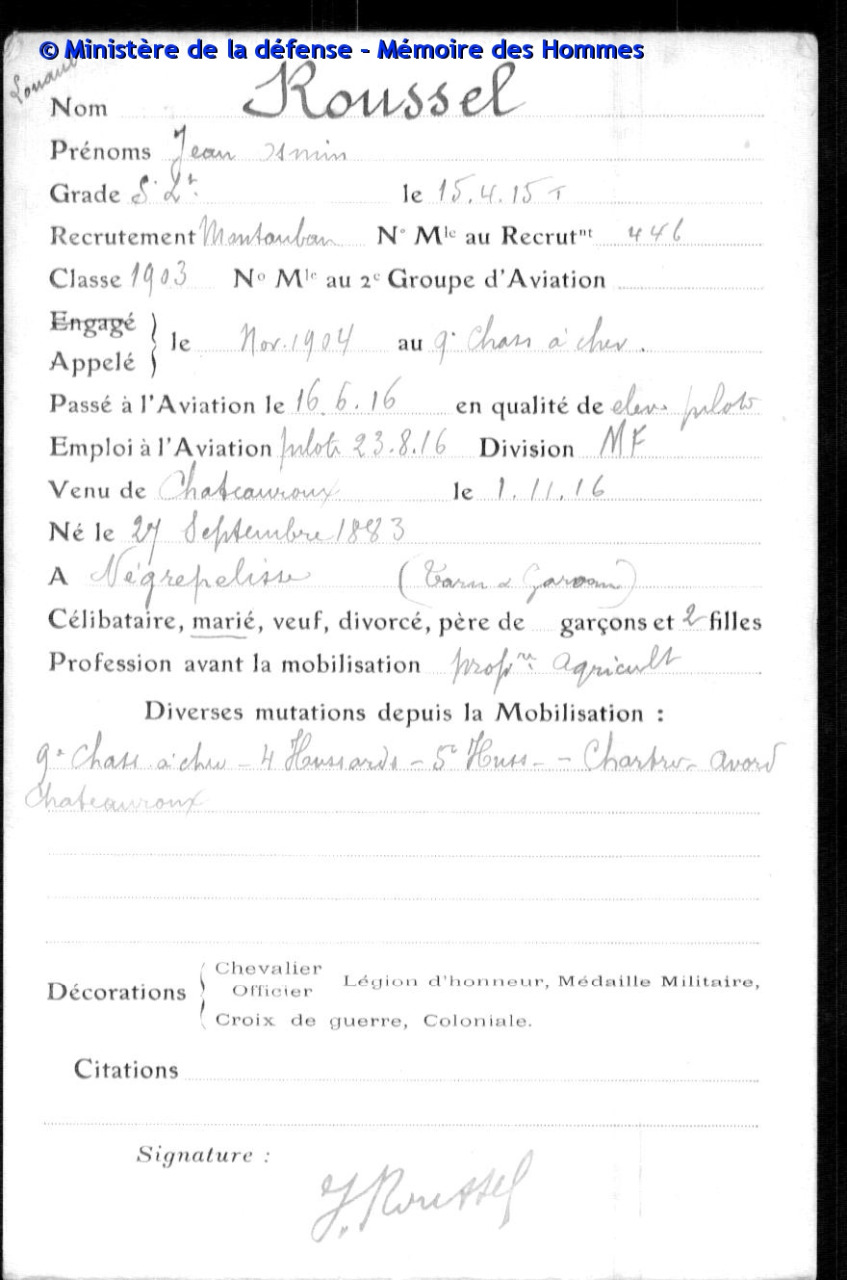 © Ministère de la défense - Mémoire des Hommes
Nom Roussel
Prénoms Jean
Grade S. Lt. le 15.4.15 T
Recrutement Montauban N° Mle au Recrutnt 446
Classe 1903 No Mle au 2e Groupe d'Aviation
Engagé
Appelé } le Nov. 1904 au 9e Chass à chev.
Passé à l'Aviation le 16.6.16 en qualité de eleve pilote
Emploi à l'Aviation pilote 23.8.16 Division MF
Venu de Chateauroux le 1.11.16
Né le 27 Septembre 1883
A Négrepelisse (Tarn & Garonne)
Célibataire, marié, veuf, divorcé, père de garçons et 2 filles
Profession avant la mobilisation propre agricult
Diverses mutations depuis la Mobilisation :
9e Chass à chev - 4 Hussards - 5e Huss - - Chartres - Avord
Chateauroux
Décorations { Chevalier
Officier Légion d'honneur, Médaille Militaire,
Croix de guerre, Coloniale.
Citations
Signature :
J. Roussel